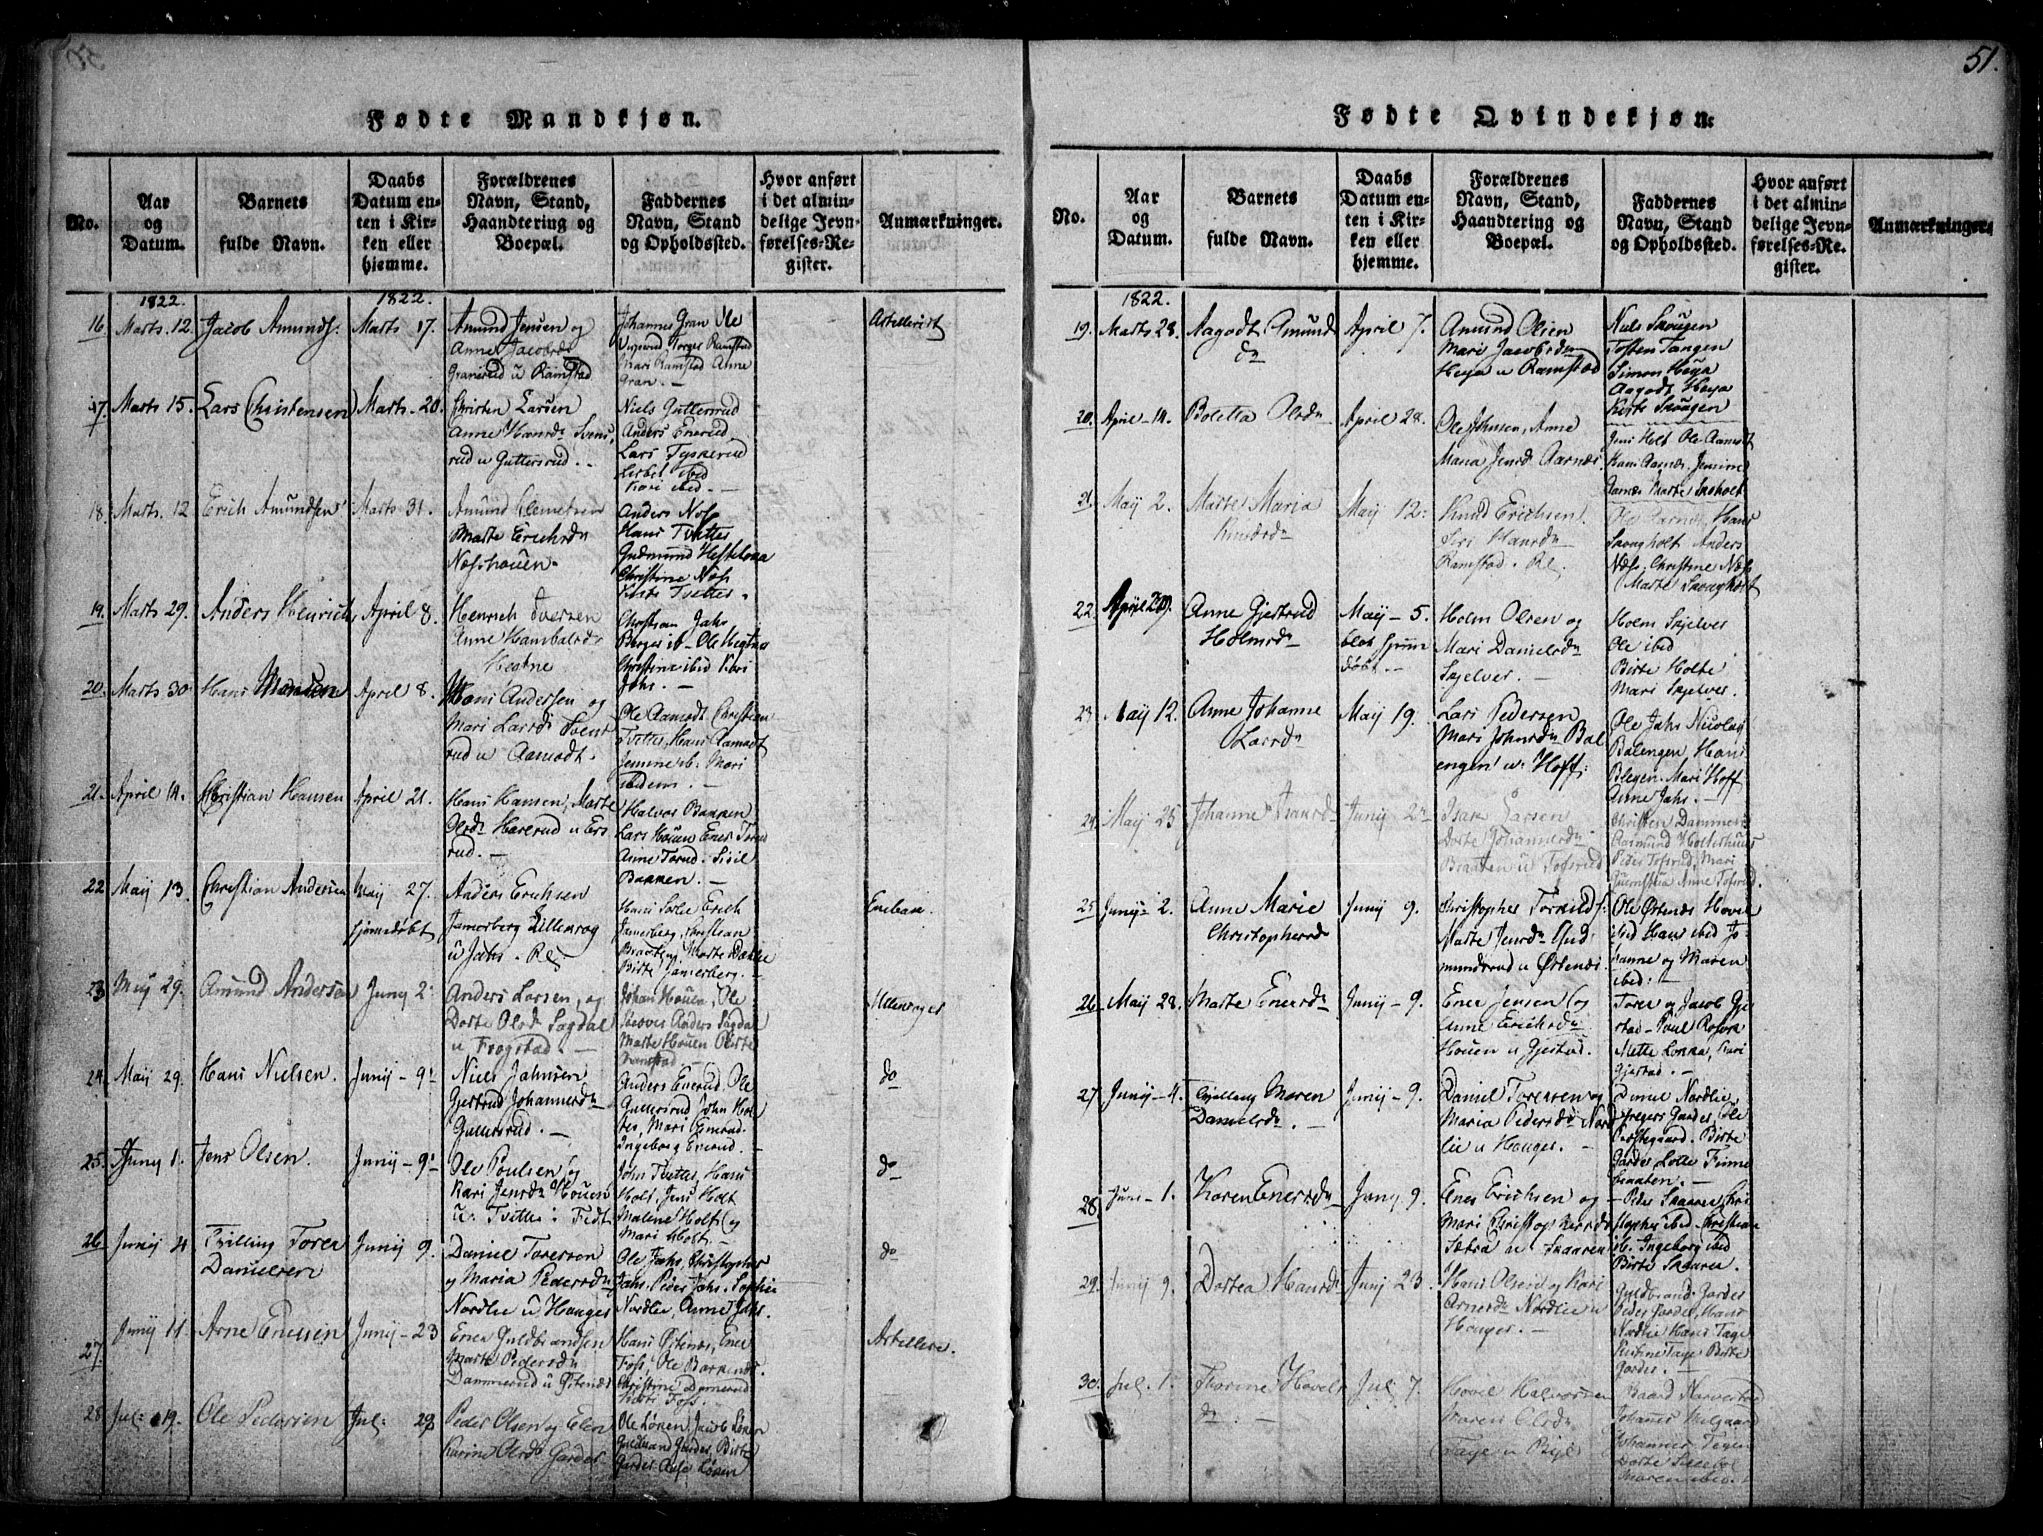 51.
Fødte Mandkjøn.
No.
Aar og Datum.
Barnets fulde Navn.
Daabs Datum enten i Kirken eller hjemme.
Forældrenes Navn, Stand, Haandtering og Boepæl.
Faddernes Navn, Stand og Opholdssted.
Hvor anført i det almindelige Jevnførelses-Register.
Anmærkninger.
1822.
1822.
16
Marts. 12.
Jacob Amunds.
Marts 17.
Amund Jensen og
Anne Jacobsdr
Granerud u Ramstad
Johannes Gran Ole
Torger Ramstad
Mari Ramstad Anne
Gran. —
Artillerist
17.
Marts 15.
Lars Christensen
Marts. 20.
Christen Larsen
Anne Hansdr Svens
rud u Guttersrud. —
Niels Guttersrud
Anders Enerud
Lars Fyskerud
Lisbet ibid
Kari ibid. —
18.
Marts. 12
Erich Amundsen
Marts 31.
Amund Clemetsen
Marte Erichsdn
Nosshouen.
Anders Noss
Hans Tvetter
Gudmund
Christine Noss
Kirsti Tvetter.
19.
Marts 29.
Anders Henrichs
April 8.
Henrich Iversen
Anne Hambalsdr
Hegtne
Christian Jahr
Borger ib. Ole Hegtne
Christine ibid Kari
Jahr. —
20.
Marts 30
Hans Hansen
April 8.
Hans Andersen og
Mari Larsdr Svens
rud u Aamodt.
Ole Aamodt Christian
Tvetter, Hans Aamodt
Jemine ib. Mari
ibidem. —
21.
April 14.
Christian Hansen
April 21.
Hans Hansen, Marte
Olsdr Harerud u Ers
rud. —
Halvor Bakken
Lars Houen Ener Torud
Anne Torud. Sisil
Bakken. —
22
Maij 13.
Christian Andersen
Maij 27.
hjemedøbt
Anders Erichsen
Jamerberg Lillerog
u Jahr.
Hans Solie Erich
Jamerberg, Christian
Braaten, Marte
Birte Jamerberg. —
Enebak.
23
Maij 29.
Amund Andersen
Junij 2.
Anders Larsen, og
Dorte Olsdr Sogdal
u Frogstad. —
Johan Houen, Ole
Anders Sogdal
Marte Houen Birte
Ramstad —
Ullensager
24.
Maij 29.
Hans Nielsen.
Junij — 9.
Niels Jahnsen
Gjertrud Johannesdr
Gullersrud. —
Anders Enerud. Ole
Gullersrud John Hol
ter, Mari Enerud.
Ingeborg Enerud. —
do
25.
Junij 1.
Jens Olsen.
Junij — 9.
Ole Poulsen og
Kari Jensdr Houen
u. Tvetter i Fedt
John Tvetter, Hans
Holt, Jens Holt
Malene Holt og
Mari Holt. —
do
26.
Junij 4
Tvilling Torer
Danielsen
Junij 9.
Daniel Toresson
og Maria Pedersdr
Nordlie u Hauger
Ole Jahr, Christopher
Jahr, Peder Jahr. Sophie
Nordlie, Anne Jahr.
do
27.
Junij 11.
Arne Enersen
Junij — 23
Ener Guldbrandsen
Marte Pedersdr
Dammerud u Østenes
Hans Østenes, Ener
Foss, Ole Bakkener
Christine Damerud
Kari Foss.
Artilleri.
28
Jul: 19.
Ole Pedersen
Jul: 28
Peder Olsen og Elen
Karine Olsdr Garder
Ole Lønen, Jacob Lønen
Guldbrand Garder, Birte
Garder Aase Lønen
Fødte Qvindekjøn:
No.
Aar og Datum.
Barnets fulde Navn.
Daabs Datum enten i Kirken eller hjemme.
Forældrenes Navn, Stand, Haandtering og Boepæl.
Faddernes Navn, Stand og Opholdssted.
Hvor anført i det almindelige Jevnførelses-Register.
Anmærkninger.
1822.
19.
Marts 28.
Aagodt Amund
dr
April 7.
Amund Olsen
Mari Jacobsdr
Heya u Ramstad
Niels Skougen
Tosten Tangen
Simon Heya
Aagodt Heya
Kirsti Skougen
20.
April — 14.
Boletta Olsdr
April 28.
Ole Johnsen, Anne
Maria Jensd Aarnes
Jens Holt Ole Aamodt
Hans Aarnes. Jemine
Aarnes Marte Skoholt
21.
Maij 2.
Marte Maria
Knudsdr
Maij 12.
Knud Erichsen
Siri Hansdr
Ramstad.
Ole Aarnes, Hans
Skougholt Anders
Næss, Christine Næss
Marte Skougholt
22.
April 29.
Anne Gjertrud
Holmsdr
Maij — 5.
blot hjemme
døbt. —
Holm Olsen og
Mari Danielsdr
Skjelver. —
Holm Skjelver
Ole ibid
Birte Holte
Mari Skjelver.
23
Maij 12.
Anne Johanne
Larsdr
Maij 19.
Lars Pedersen
Mari Johnsdr Bal
engen u. Hoff.
Ole Jahr Nicolay
Balengen, Hans
Blegen. Mari Hoff
Anne Jahr. —
24.
Maij 25
Johanne Isaksdr
Junij 2
Isak Larsen
Dorte Johannesdr
Braaten u Tofsrud
Christen Dammerud
Rasmund Holterhuus
Peder Tofsrud, Mari
Anne Tofsrud.
25
Junij 2.
Anne Marie
Christophersdr
Junij 9.
Christopher Torkilds.
Marte Jensdr Gud
mundsrud u Østenes
Ole Østenes Hovel
ibid Hans ibid Jo
hanne og Maren
ibid. —
26.
Maij 28.
Marte Enersdr
Junij — 9.
Ener Jensen og
Anne Erichsdr
Houen u Gjestad.
Torer og Jacob Gje
stad — Poul
Mette Lokka, Kari
Gjestad. —
27
Junij — 4.
Tvilling Maren
Danielsdr. —
Junij — 9.
Daniel Toresson og
Maria Pedersdr Nord
lie u Hauger. —
Daniel Nordlie,
Garder Ole
Præstegaard. Birte
Garder, Lotte Finne
braaten. —
28.
Juni — 1.
Karen Enersdr
Junij 9.
Ener Erichsen og
Mari Christophersdr
Sætra u Skaaren
Peder Skaaren, Chri
stopher ibid. Christian
ib. Ingeborg ibid
Birte Skaaren.
29.
Junij 9.
Dortea Hansdr
Junij 23.
Hans Olsen og Kari
Arnesdr Nordlie u
Hauger. —
Guldbrand Garder
Peder Garder, Hans
Nordlie Hans Tage
Tage Birte
Garder. —
30.
Jul. 1.
Thorine Hovels
dr. —
Jul. 7.
Hovel Halvorsen
Karen Olsdr
Taye u
Baard
Johannes
Johannes Tegen
Dorte
Maren ibid.